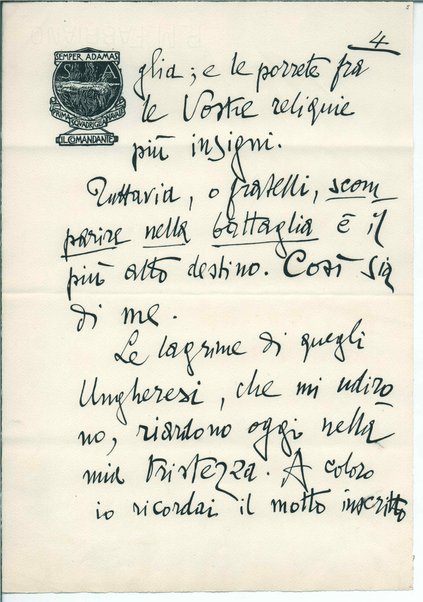 4
SEMPER ADAMAS
S A
PRIMA SQUADRIGLIA NAVALE
IL COMANDANTE
glia; e le porrete fra
le Vostre reliquie
più insigni.
Tuttavia, o fratelli, scom
parire nella battaglia è il
più alto destino. Così sia
di me.
Le lagrime di quegli
Ungheresi, che mi udiro
no, riardono oggi nella
mia tristezza. A coloro
io ricordai il motto inscritto